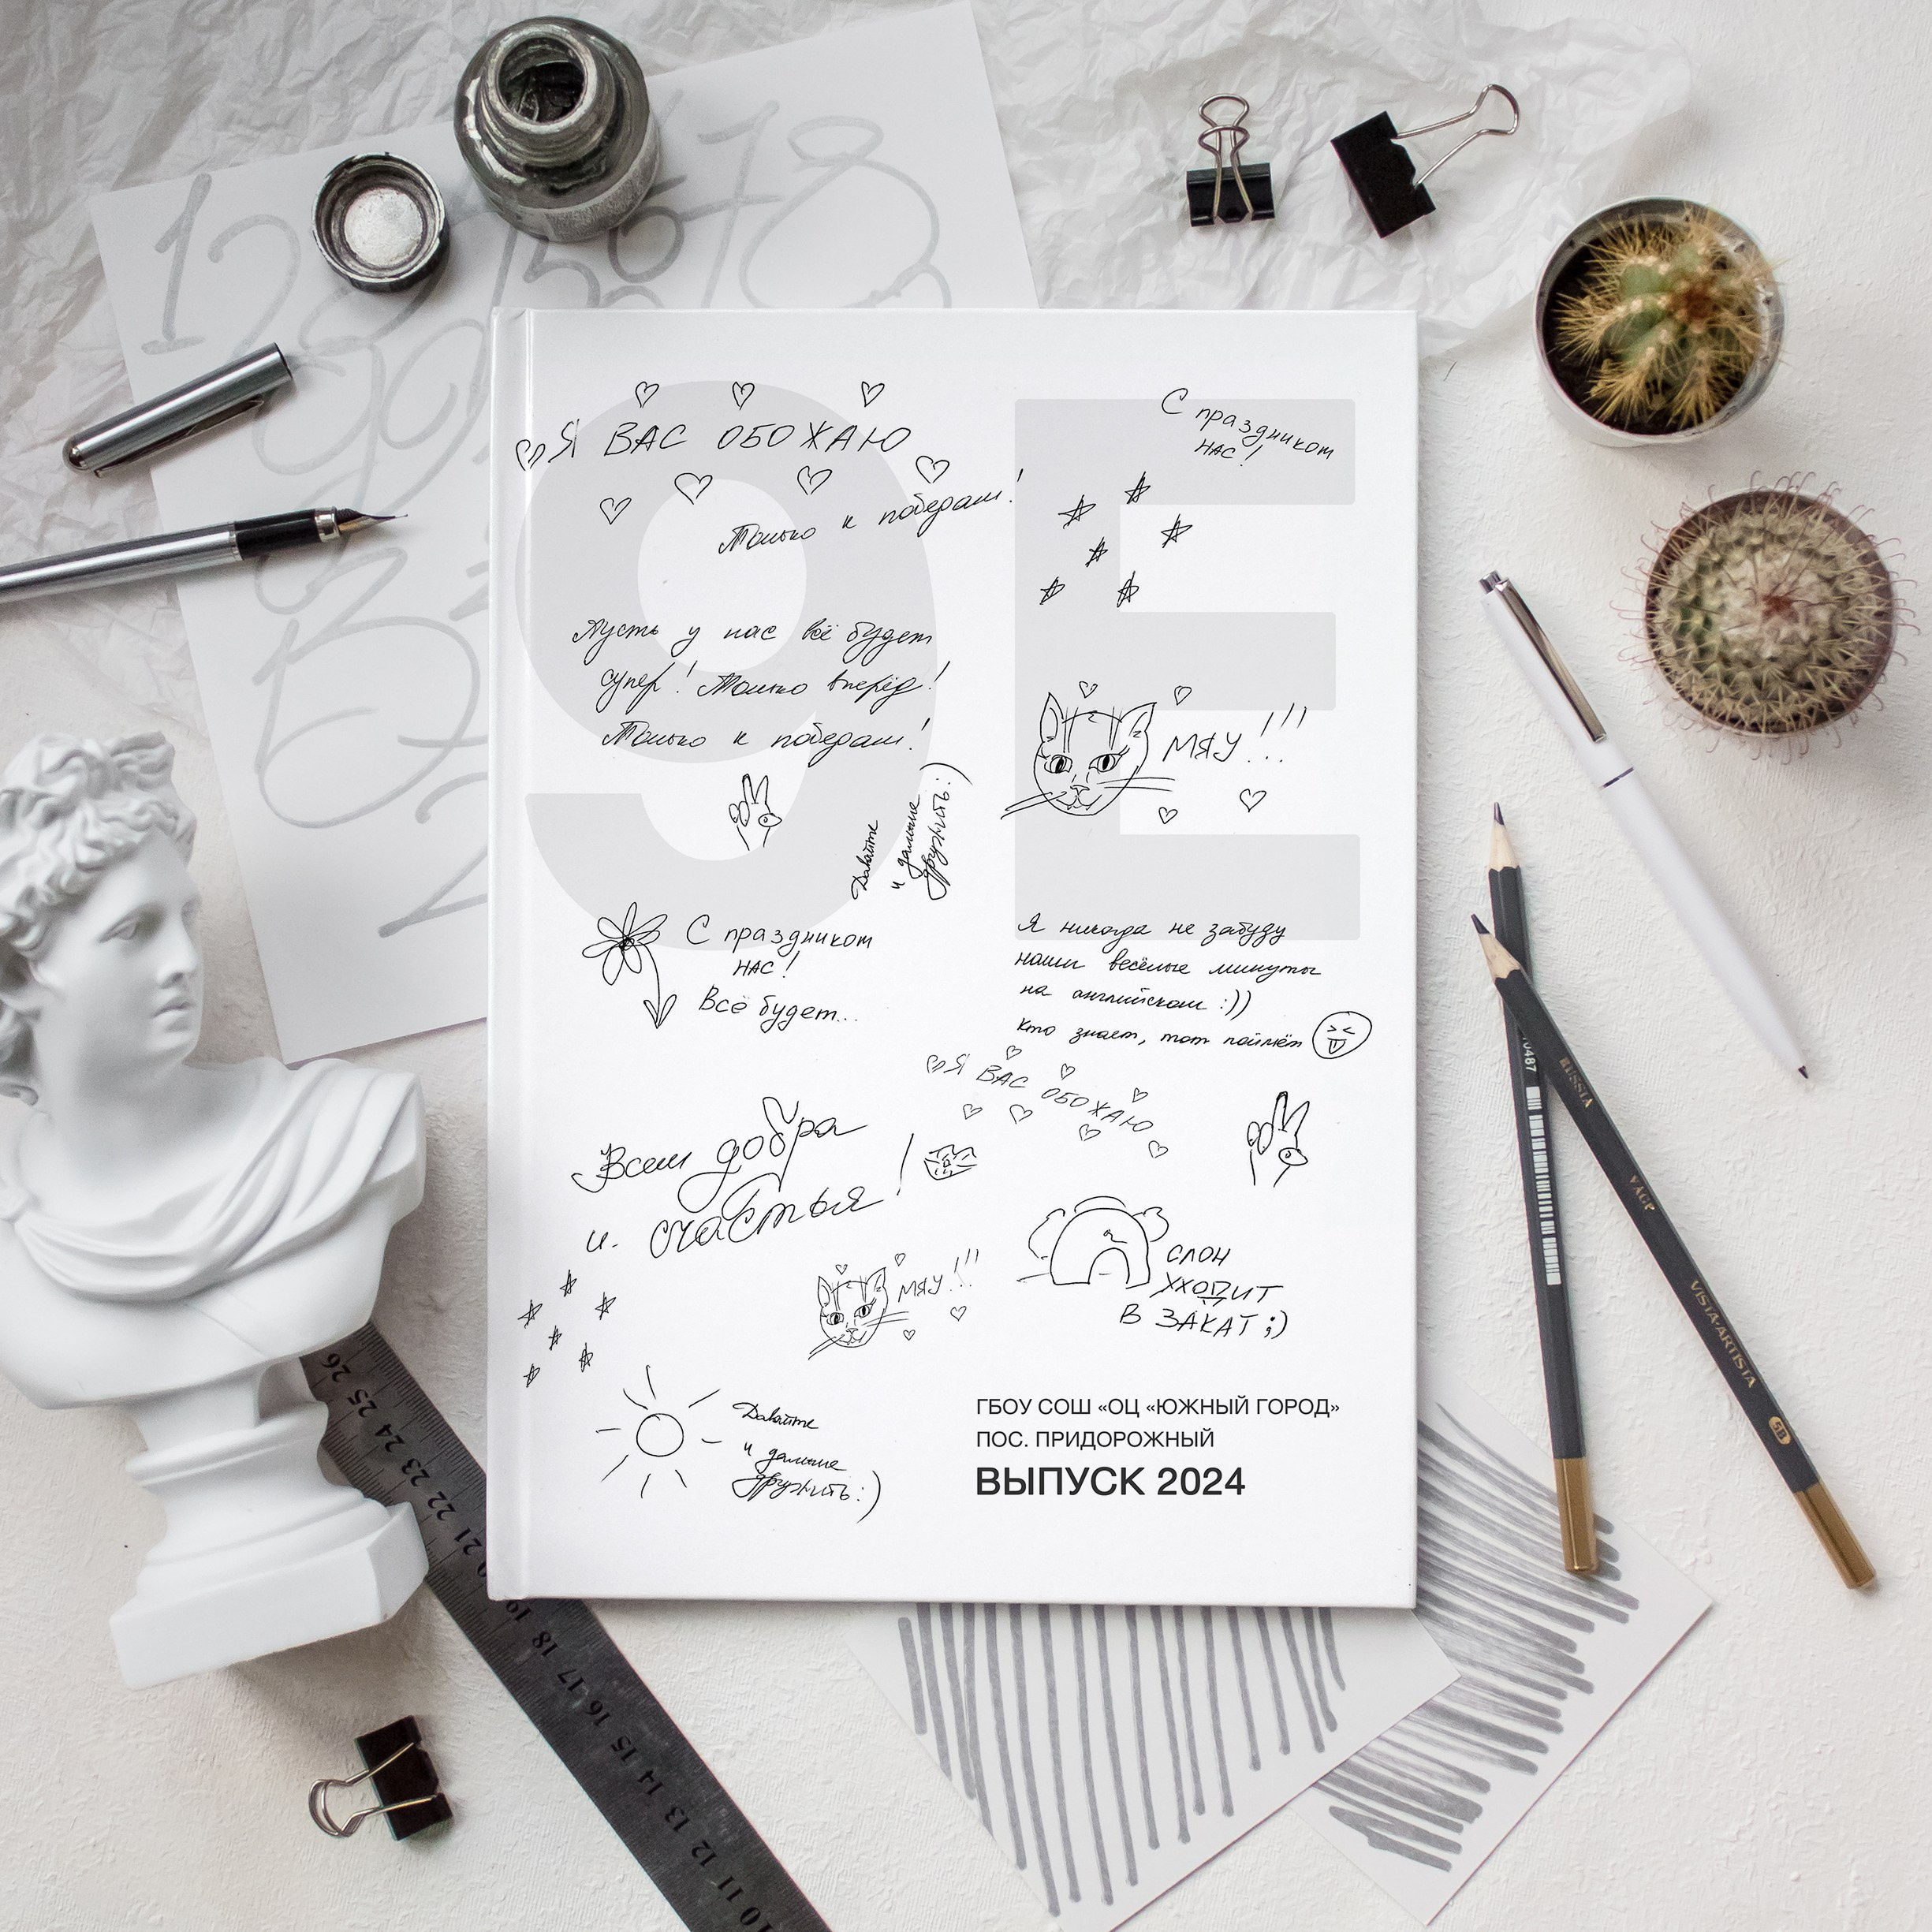 1 2 3
5 6 7 8
9 Е
Я ВАС ОБОЖАЮ
С праздником
НАС!
Только к победам!
Пусть у нас всё будет
супер! Только вперёд!
Только к победам!
МЯУ!!!
Давайте
и дальше
дружить:)
С праздником
НАС!
Всё будет...
Я никогда не забуду
наши весёлые минуты
на английском :))
кто знает, тот поймёт
Я ВАС ОБОЖАЮ
Всем добра
и счастья!
МЯУ!!!
СЛОН
УХОДИТ
В ЗАКАТ ;)
Давайте
и дальше
дружить:)
ГБОУ СОШ «ОЦ «ЮЖНЫЙ ГОРОД»
ПОС. ПРИДОРОЖНЫЙ
ВЫПУСК 2024
0487
RUSSIA
VISTA-ARTISTA
26 25 24 23 22 21 20 19 18 17 16 15 14 13 12 11 10